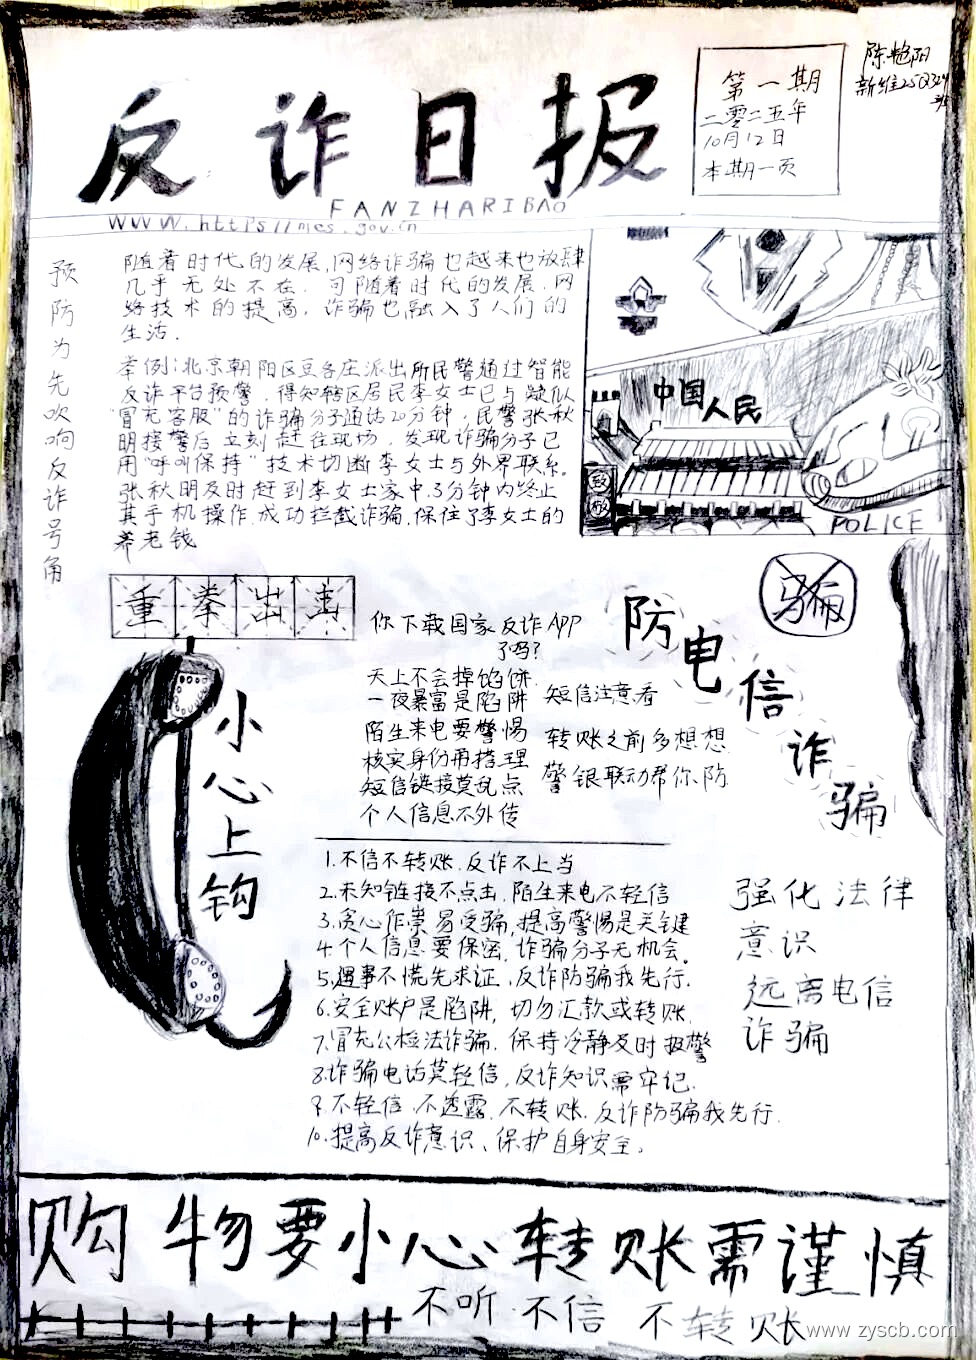 陈艳阳
新维25Q324
班
反诈日报
第一期
二零二五年
10月12日
本期一页
FANZHARIBAO
预防为先吹响反诈号角
随着时代的发展,网络诈骗也越来也放肆
几乎无处不在。可随着时代的发展,网
络技术的提高,诈骗也融入了人们的
生活.
举例:北京朝阳区豆各庄派出所民警通过智能
反诈平台预警,得知辖区居民李女士已与疑似
“冒充客服”的诈骗分子通话20分钟,民警张秋
明接警后立刻赶往现场,发现诈骗分子已
用“呼叫保持”技术切断李女士与外界联系。
张秋明及时赶到李女士家中.3分钟内终止
其手机操作,成功拦截诈骗,保住了李女士的
养老钱
中国人民
致敬
POLICE
重拳出击
小心上钩
你下载国家反诈APP
了吗?
天上不会掉馅饼.
一夜暴富是陷阱
陌生来电要警惕
核实身份再搭理
短信链接莫乱点
个人信息不外传
短信注意看
转账之前多想想
警银联动帮你防
骗
防电信诈骗
1.不信不转账.反诈不上当
2.未知链接不点击,陌生来电不轻信
3.贪心作祟易受骗,提高警惕是关键
4.个人信息要保密,诈骗分子无机会。
5.遇事不慌先求证,反诈防骗我先行.
6.安全账户是陷阱,切勿汇款或转账.
7.冒充公检法诈骗.保持冷静及时报警
8.诈骗电话莫轻信,反诈知识需牢记.
9.不轻信.不透露.不转账.反诈防骗我先行.
10.提高反诈意识、保护自身安全。
强化法律
意识
远离电信
诈骗
购物要小心转账需谨慎
不听.不信 不转账
www.zyscb.com